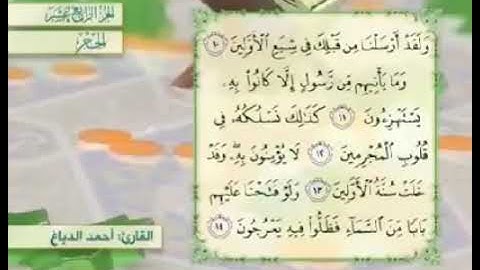 الجزء الرابع عشر
الحجر
وَلَقَدْ أَرْسَلْنَا مِن قَبْلِكَ فِى شِيَعِ ٱلْأَوَّلِينَ ١٠
وَمَا يَأْتِيهِم مِّن رَّسُولٍ إِلَّا كَانُوا۟ بِهِۦ
يَسْتَهْزِءُونَ ١١ كَذَٰلِكَ نَسْلُكُهُۥ فِى
قُلُوبِ ٱلْمُجْرِمِينَ ١٢ لَا يُؤْمِنُونَ بِهِۦ وَقَدْ
خَلَتْ سُنَّةُ ٱلْأَوَّلِينَ ١٣ وَلَوْ فَتَحْنَا عَلَيْهِم
بَابًا مِّنَ ٱلسَّمَآءِ فَظَلُّوا۟ فِيهِ يَعْرُجُونَ ١٤
القارئ: أحمد الدباغ